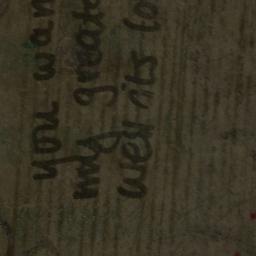 you wan
my great
well its lo